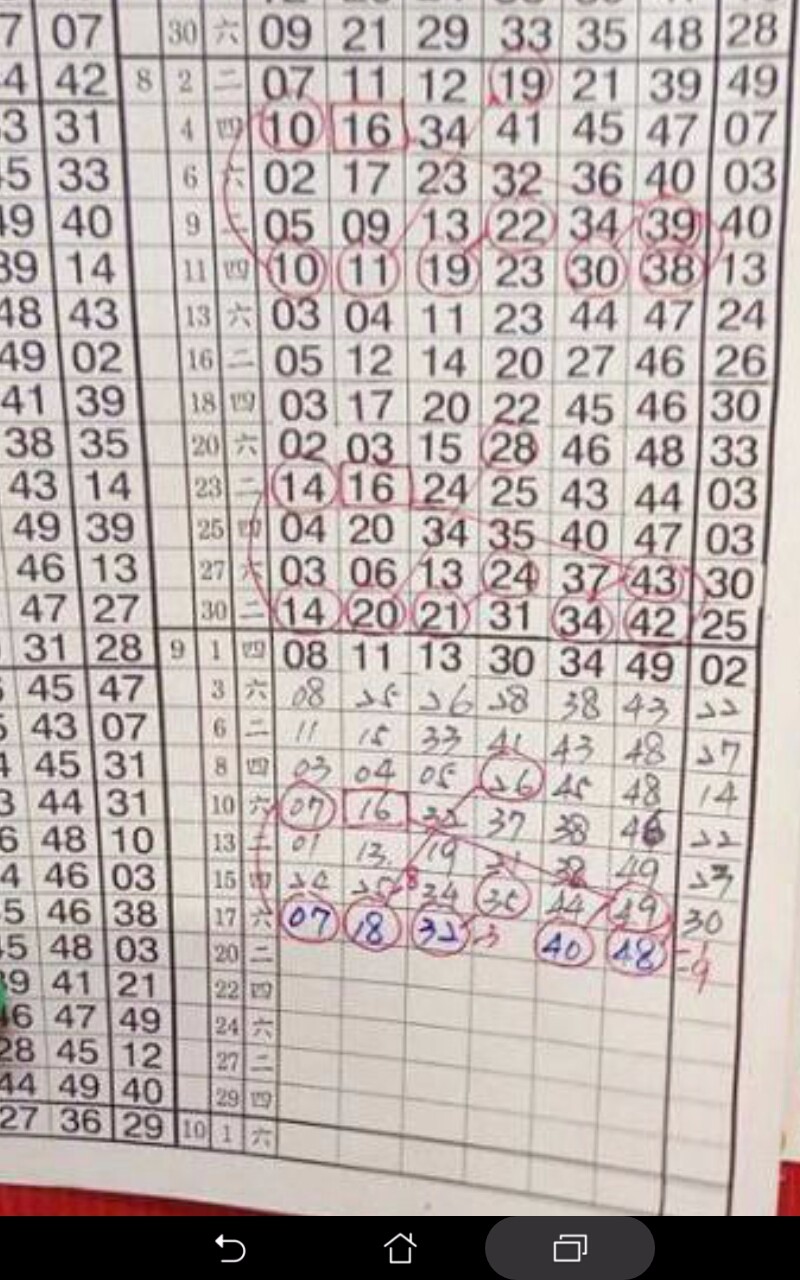 7 07 30 六 09 21 29 33 35 48 28
4 42 8 2 二 07 11 12 19 21 39 49
3 31 4 四 10 16 34 41 45 47 07
45 33 6 六 02 17 23 32 36 40 03
49 40 9 二 05 09 13 22 34 39 40
39 14 11 四 10 11 19 23 30 38 13
48 43 13 六 03 04 11 23 44 47 24
49 02 16 二 05 12 14 20 27 46 26
41 39 18 四 03 17 20 22 45 46 30
38 35 20 六 02 03 15 28 46 48 33
43 14 23 二 14 16 24 25 43 44 03
49 39 25 四 04 20 34 35 40 47 03
46 13 27 六 03 06 13 24 37 43 30
47 27 30 二 14 20 21 31 34 42 25
31 28 9 1 四 08 11 13 30 34 49 02
45 47 3 六 08 25 26 28 38 43 22
43 07 6 二 11 15 33 41 43 48 27
45 31 8 四 03 04 05 26 45 48 14
3 44 31 10 六 07 16 37 38 22
6 48 10 13 二 01 13 19 38 49
4 46 03 15 四 25 34 35 44 49 30
5 46 38 17 六 07 18 32 40 48
45 48 03 20 二
39 41 21 22 四
46 47 49 24 六
28 45 12 27 二
44 49 40 29 四
27 36 29 10 1 六